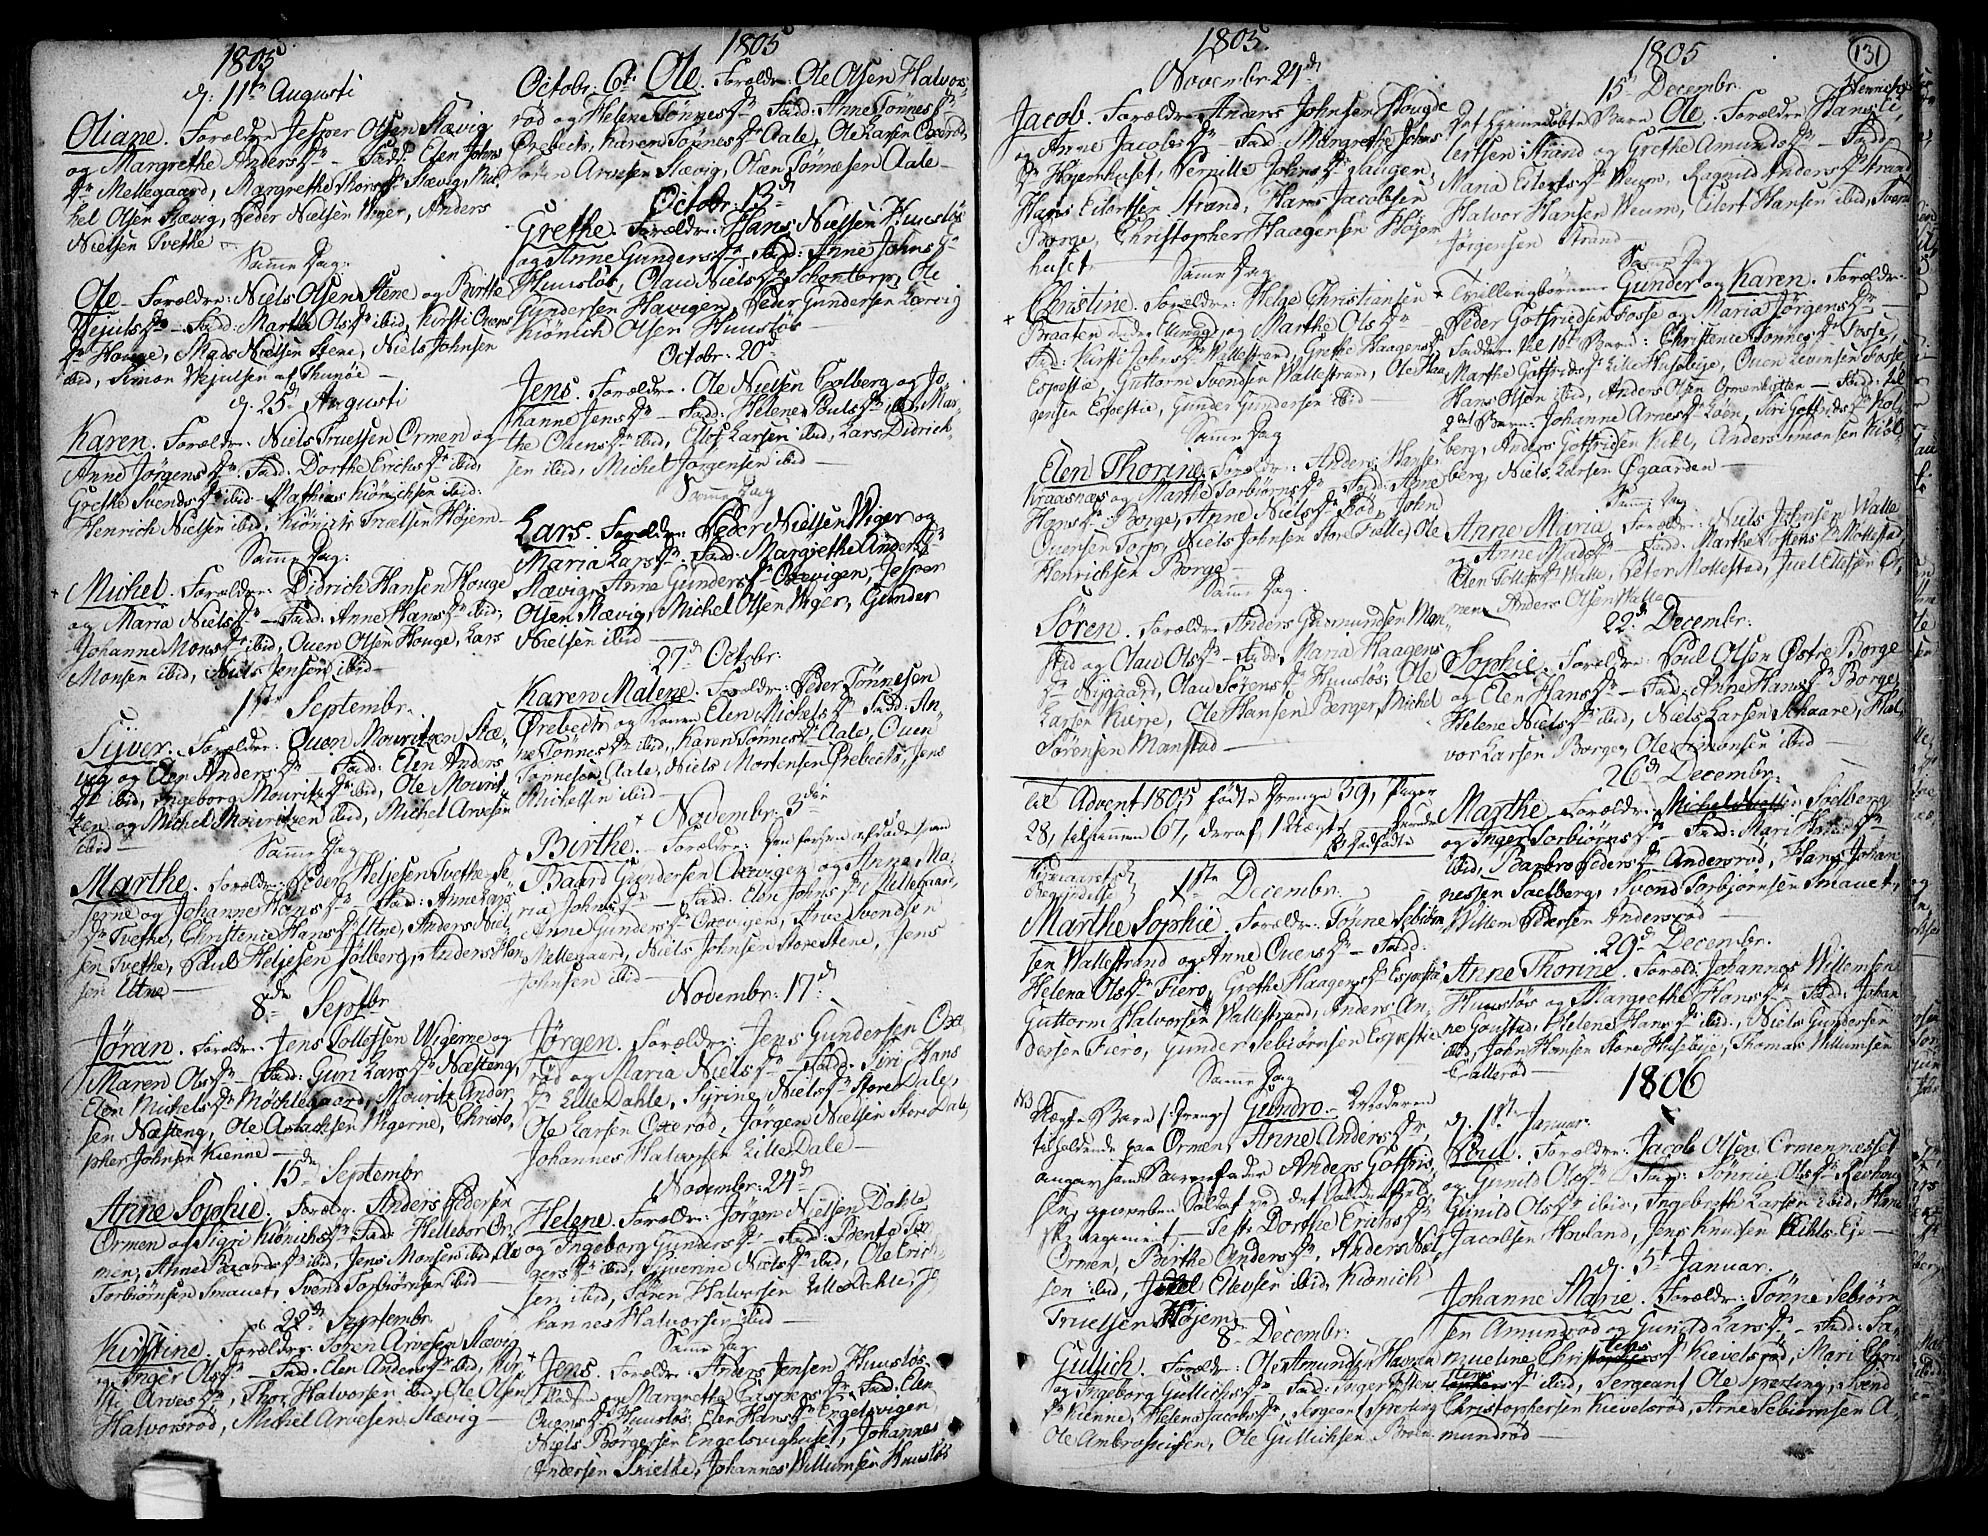 1805
d: 11te Augusti
Oliane. Forældre Jesper Olsen Slævig
og Margrethe Andersdr — Fadd: Elen Johns
dr Mellegaard, Margrethe Thorsdr Slævig, Mic
hel Olsen Slævig, Peder Nielsen Wiger, Anders
Nielsen Tvethe —
Samme Dag:
Ole — Forældre: Niels Olsen Stene og Birthe
Wejulsdr — Fadd: Marthe Olsdr ibid, Kirsti Ouens
dr Houge, Mads Nielsen Stene, Niels Johnsen
ibid, Simon Wejulsen af Thunøe —
d. 25de Augusti
Karen. Forældre: Niels Truelsen Ormen og
Anne Jørgensdr. Fadd: Dorthe Erichsdr ibid,
Grethe Svendsdr ibid: Mathias Kiønichsen ibid:
Henrich Nielsen ibid, Kiønich Truelsen Højem —
Samme Dag:
Michel. Forældre: Didrich Hansen Houge
og Maria Nielsdr — Fadd: Anne Hansdr ibid;
Johanne Monsdr ibid, Ouen Olsen Houge, Lars
Monsen ibid, Niels Jensen ibid —
1ste Septembr.
Sijver. Forældre: Ouen Mouritzen Slæ-
vig og Elen Andersdr Fadd: Elen Anders
dr ibid, Ingeborg Mouritzdr ibid, Ole Mourit,
zen og Michel Mouritzen ibid, Michel Arvesen
ibid —
Samme Dag
Marthe. Forældre: Peder Heljesen Tvethe
og Johanne Hansdr — Fadd: Anne Lars
dr Tvethe, Christence Hansdr Utne, Anders Niel
sen Tvethe, Paul Heljesen Jølberg, Anders Han
sen Utne —
8de Septbr
Jøran. Forældre: Jens Tollofsen Wigerne og
Maren Olsdr — Fadd: Guri Larsdr Næsteng,
Elen Michelsdr Mochlegaard, Mouritz Ander
sen Næsteng, Ole Aslachsen Wigerne, Christo,
pher Johnsen Kienne —
15de Septembr
Anne Sophie. Forældr. Anders Pedersen
Ormen og Sigri Kiønichsdr — Fadd: Hellebor Or
men, Anne Baardsdr ibid, Jens Monsen ibid, Ole
Torbiørnsen Smauet, Svend Torbiørnsen ibid —
22de Septembr
Kirstine. Forældre: Søren Arvesen Slævig
og Inger Olsdr — Fadd. Elen Andersdr ibid, Kir
sti Arvesdr, Thor Halvorsen ibid, Ole Olsen
Halvorsrød, Michel Arvesen Slævig —
1805
Octobr: 6te Ole. Forældre: Ole Olsen Halvors
rød og Helene Tønnesdr — Fadd: Anne Tønnesdr
Ørebech, Karen Tønnesdr Aale, Ole Larsen Oxerød
Søren Arvesen Slævig, Ouen Tønnesen Aale —
Octobr: 13de
Grethe. Forældre: Hans Nielsen Huusløs
og Anne Gundersdr — Fadd: Anne Johnsdr
Huusløs, Olau Nielsdr Schontorp, Ole
Gundersen Havigen, Peder Gundersen Larvig
Kiønich Olsen Huusløs —
Octobr: 20de
Jens. Forældre. Ole Nielsen Colberg og Jo
hanne Jensdr — Fadd: Helene Poulsdr ibid, Mar-
the Olsensdr ibid, Ellef Larsen ibid, Lars Didrich-
sen ibid, Michel Jørgensen ibid —
Samme Dag
Lars. Forældre: Peder Nielsen Wiger og
Maria Larsdr — Fadd: Margrethe Andersdr
Slævig, Anne Gundersdr Oxevigen, Jesper
Olsen Slævig, Michel Olsen Wiger, Gunder
Nielsen ibid —
27de Octobr:
Karen Malene. Forældre: Peder Tønnesen
Ørebech og Konen Elen Michelsdr — Fadd: An,
ne Tønnesdr ibid, Karen Tønnesdr Aale, Ouen
Tønnesen Aale, Niels Mortensen Ørebech, Jens
Michelsen ibid —
Novembr: 3die
Birthe. — Forældre:
Baard Gundersen Oxevigen og Anne Ma-
ria Johnsdr — Fadd. Elen Johnsdr Mellegaard,
Anne Gundersdr Oxevigen, Arve Svendsen
Mellegaard, Niels Johnsen Store Stene, Jens
Johnsen ibid —
Novembr: 17de
Jørgen. Forældre: Jens Gundersen Oxe
rød og Maria Nielsdr — Fadd: Siri Hans
dr Lille Dahle, Syrine Nielsdr Store Dale,
Ole Larsen Oxerød, Jørgen Nielsen Store Dale
Johannes Halvorsen Lille Dale —
Novembr: 24de
Helene. Forældre: Jørgen Nielsen Dahle
og Ingeborg Gundersdr, — Fadd: Bente
gersdr ibid, Siverine Nielsdr ibid, Ole Erich-
sen ibid, Søren Halvorsen Lille Dahle, Jo
hannes Halvorsen ibid —
Samme Dag
Jens. Forældre: Anders Jensen Huusløs
og Margrethe Caspersdr. Fadd. Elen
Ouensdr Huusløs, Elen Hansdr Engelsvigen
Niels Børgersen Engelsvighuset, Johannes
Andersen Skielke, Johannes Willumsen Huusløs
1805.
Novembr 24de
Jacob. Forældre Anders Johnsen Hougde
og Anne Jacobsdr — Fadd: Margrethe Johns
dr Højemhuset, Pernille Johnsdr Haugen,
Hans Eilertsen Strand, Hans Jacobsen
Borge, Christopher Haagensen Højem
huset —
Samme Dag
Christine. Forældre: Helge Christiansen
Braaten og Marthe Olsdr —
Fadd: Kirsti Johnsdr Wallestrand, Grethe Haagensdr
Espestie, Guttorm Svendsen Wallestrand, Ole Haa
gensen Espestie, Gunder Gundersen ibid —
Samme Dag
Elen Thorine. Forældr: Anders Hansen
Kraasnæs og Marthe Torbiørnsdr — Fadd: Anne
Hansdr Borge, Anne Nielsdr John
Ouensen Torp, Niels Johnsen Store Fielle, Ole
Henrichsen Borge —
Samme Dag.
Søren. Forældre: Anders Gudmundsen Man
stad og Olau Olsdr — Fadd: Maria Haagens
dr Nygaard, Olau Sørensdr Huusløs, Ole
Larsen Kiere, Ole Hansen Berger, Michel
Sørensen Manstad —
til Advent 1805 fødte Drenge 39, Piger
28, tilsammen 67, deraf 1 Uægte
3 dødfødte
Kirkeaarets
Begyndelse
1ste Decembr.
Marthe Sophie. Forældre: Tønne Sebiørn
sen Wallestrand og Anne Ouensdr — Fadd:
Helena Olsdr Fierø, Grethe Haagensdr Espestie
Guttorm Halvorsen Wallestrand, Anders An
dersen Fierø, Gunder Sebiørnsen Espestie
Samme Dag
NB Uægte Barn (:Dreng:) Gundro. — Moderen
tilholdende paa Ormen, Anne Andersdr,
angav som Barnefader Anders Gotfrid,
sen, gevorben Soldat ved det Søndenfield,
ske Regiment — Test. Dorthe Erichsdr
Ormen, Børthe Andersdr, Anders Niel,
sen ibid, Ellevsen ibid, Kiønich
Truelsen Højem —
8de Decembr:
Gullich. Forældre: Ole Amundsen Hauen
og Ingeborg Gullichsdr — Fadd: Inger
dr Kienne, Helene Jacobsdr, Sergeant Sperling
Ole Ambrosiesen, Ole Gullichsen Bro
1805
131
15de Decembr.
Det hjemmedøbte Barn Ole. Forældre Hans Ei,
lertsen Strand og Grethe Amundsdr — Fadd:
Maria Eilertsdr Weum, Ragnild Andersdr Strand
Halvor Hansen Weum, Eilert Hansen ibid, Svend
Jørgensen Strand —
Samme Dag
Tvillingbørnene Gunder og Karen. Forældre:
Peder Gotfriedsen Fosse og Maria Jørgensdr —
Faddere til 1ste Barn: Christence Tønnesdr Fosse,
Marthe Gotfridsdr Lille Husebye, Ouen Levinsen Fosse
Hans Olsen ibid, Anders Olsen Ormenbøtten — Fadd: til
2det Barn: Johanne Arnesdr Løen, Siri Gotfridsdr Kol,
berg, Anders Gotfridsen Kihl, Anders Simonsen Kiøl,
berg, Niels Larsen Øgaarden —
Samme Dag
Anne Maria. Forældre: Niels Johnsen Walle
og Anne Madsdr — Fadd: Marthe Mostensdr Mollestad,
Elen Tollefsdr Walle, Peter Mollestad, Juel Ellefsen Or
men, Anders Olsen Walle —
22de Decembr:
Sophie. Forældre: Poul Olsen Østre Borge
og Elen Hansdr — Fadd: Anne Hansdr Borge,
Helene Nielsdr ibid, Niels Larsen Schaare, Hal,
vor Larsen Borge, Ole Simonsen ibid —
26de Decembr:
Marthe. Forældre: Sølberg
og Inger Torbiørnsdr — Fadd: Mari
ibid, Barbro Pedersdr Andersrød, Hans Johan
nessen Saelberg, Svend Torbjørnsen Smauet,
Willum Pedersen Andersrød —
29de Decembr.
Anne Thorine. Foræld: Johannes Willumsen
Huusløs og Margrethe Hansdr — Fadd: Johan
ne Gaustad, Helene Hansdr ibid, Niels Gundersen
ibid, John Hansen Store Husebye, Thomas Willumsen
Trællerød —
1806
d. 1ste Januar.
Poul. Forældre: Jacob Olsen Ormennæsset
og Gunild Olsdr — Fadd: Tønnie Olsdr Revhaug
Gunild Olsdr ibid, Ingebreth Larsen ibid, Hans
Jacobsen Houland, Jens Knudsen Kihls Eje —
d. 5te Januar.
Johanne Marie. Forældre: Tønne Sebiørn
sen Amundrød og Gunild Larsdr — Fadd: Sa-
mueline Christensdr Kievelsrød, Mari Chri
stensdr ibid, Sergeant Ole Sperling, Svend
Christophersen Kievelsrød, Arne Sebiørnsen A,
mundrød —